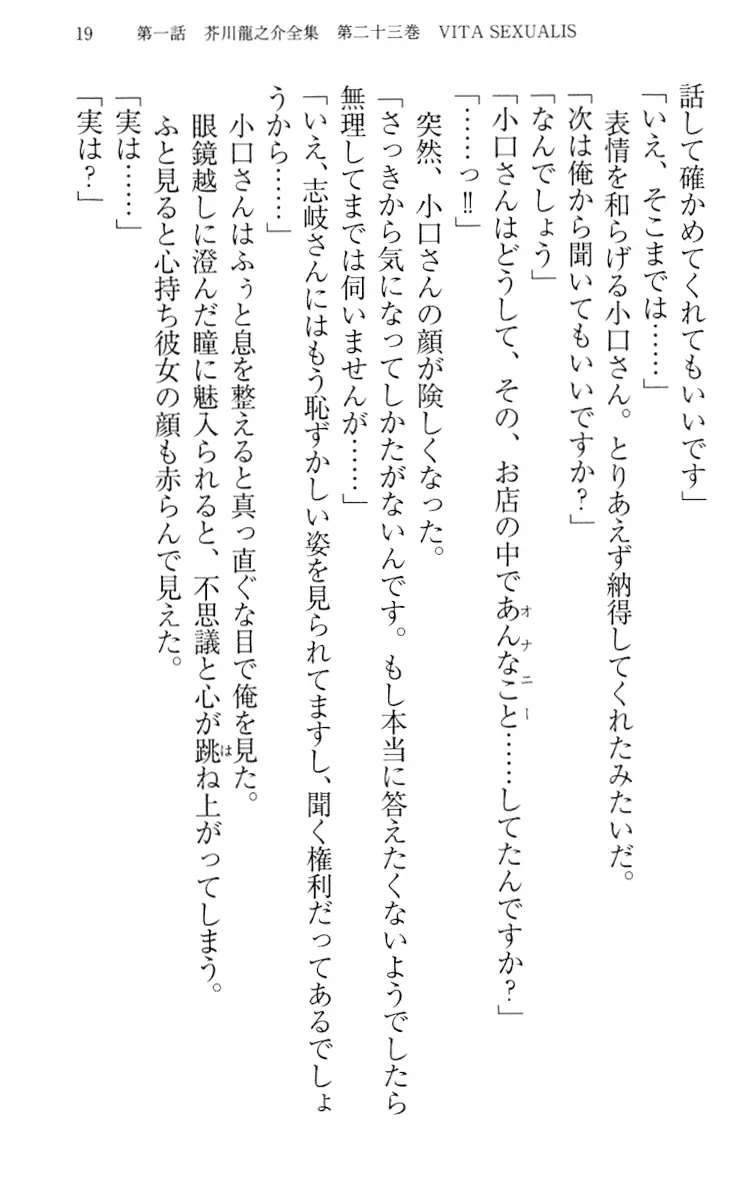 19　第一話　芥川龍之介全集　第二十三巻　VITA SEXUALIS
話して確かめてくれてもいいです」
「いえ、そこまでは……」
表情を和らげる小口さん。とりあえず納得してくれたみたいだ。
「次は俺から聞いてもいいですか？」
「なんでしょう」
「小口さんはどうして、その、お店の中であんなこと……してたんですか？」
オナニー
「……っ‼」
突然、小口さんの顔が険しくなった。
「さっきから気になってしかたがないんです。もし本当に答えたくないようでしたら
無理してまでは伺いませんが……」
「いえ、志岐さんにはもう恥ずかしい姿を見られてますし、聞く権利だってあるでしょ
うから……」
小口さんはふぅと息を整えると真っ直ぐな目で俺を見た。
眼鏡越しに澄んだ瞳に魅入られると、不思議と心が跳ね上がってしまう。
は
ふと見ると心持ち彼女の顔も赤らんで見えた。
「実は……」
「実は？」